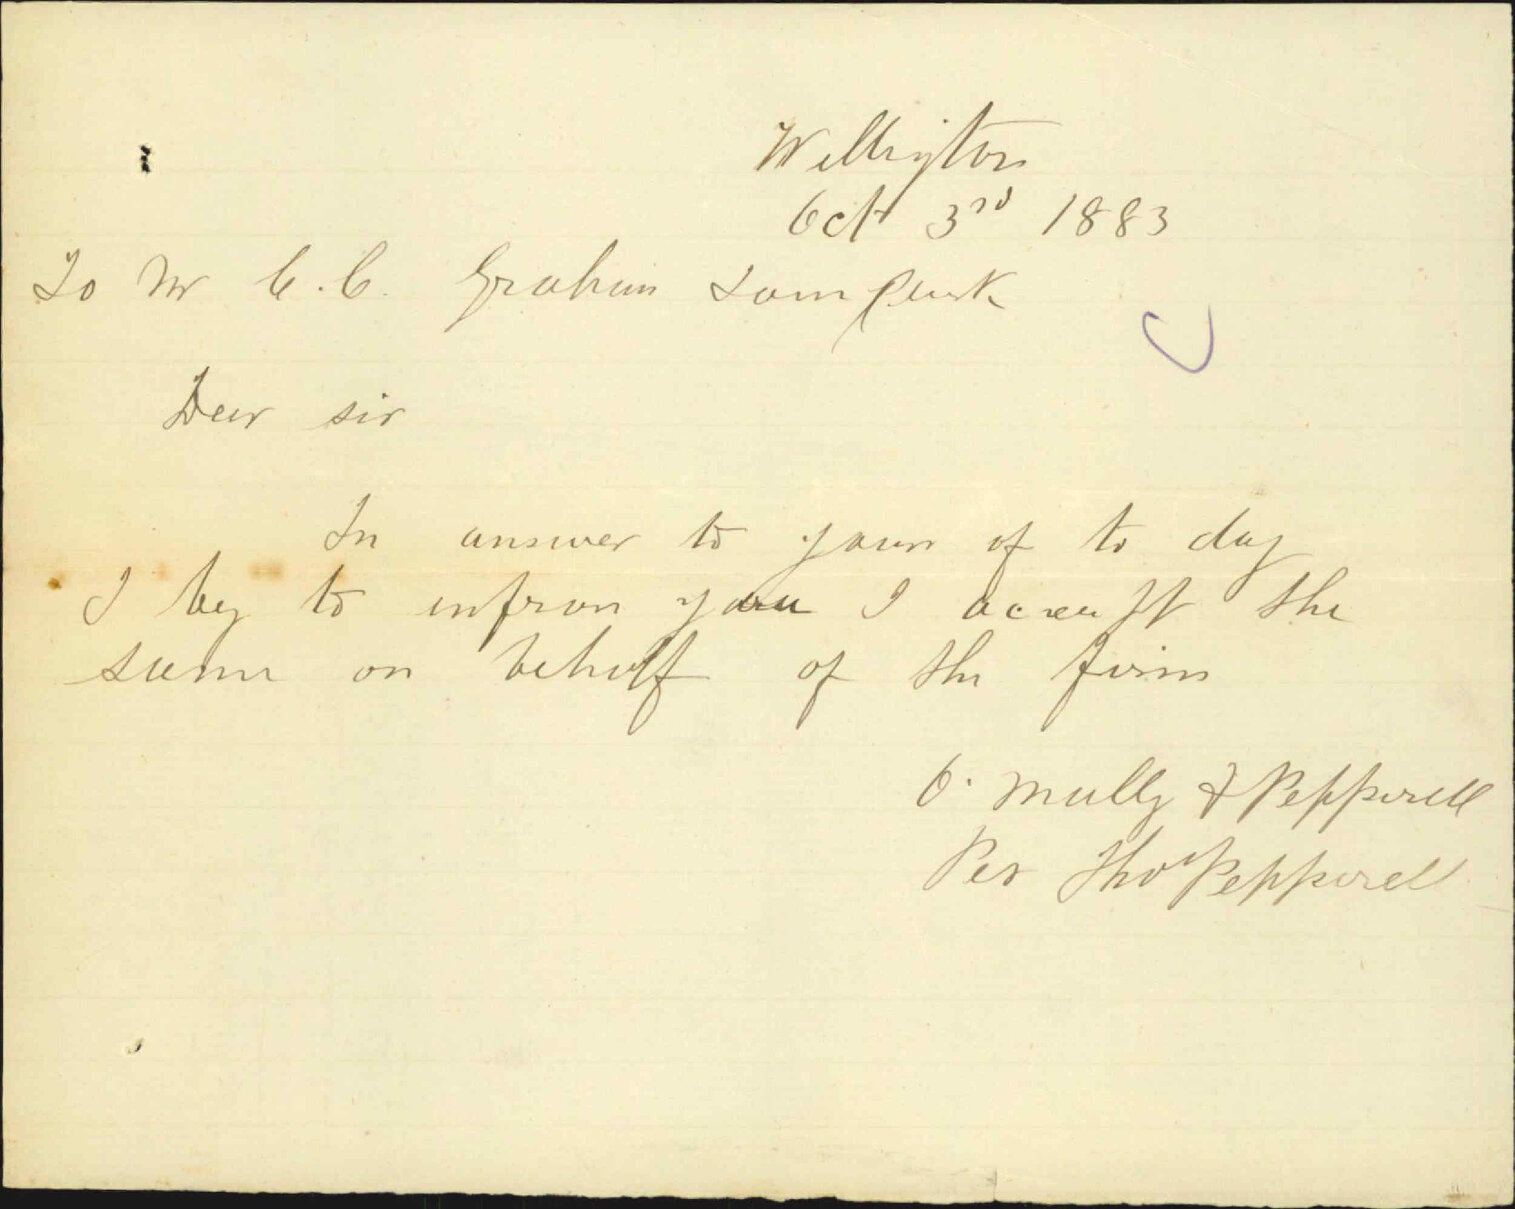 Wellington
Oct 3rd 1883
To Mr C. C. Graham Town Clerk
Dear sir
In answer to yours of to day
I beg to infrom you I accept the
same on behalf of the firm
O. Mully & Pepperell
Per Thos Pepperell